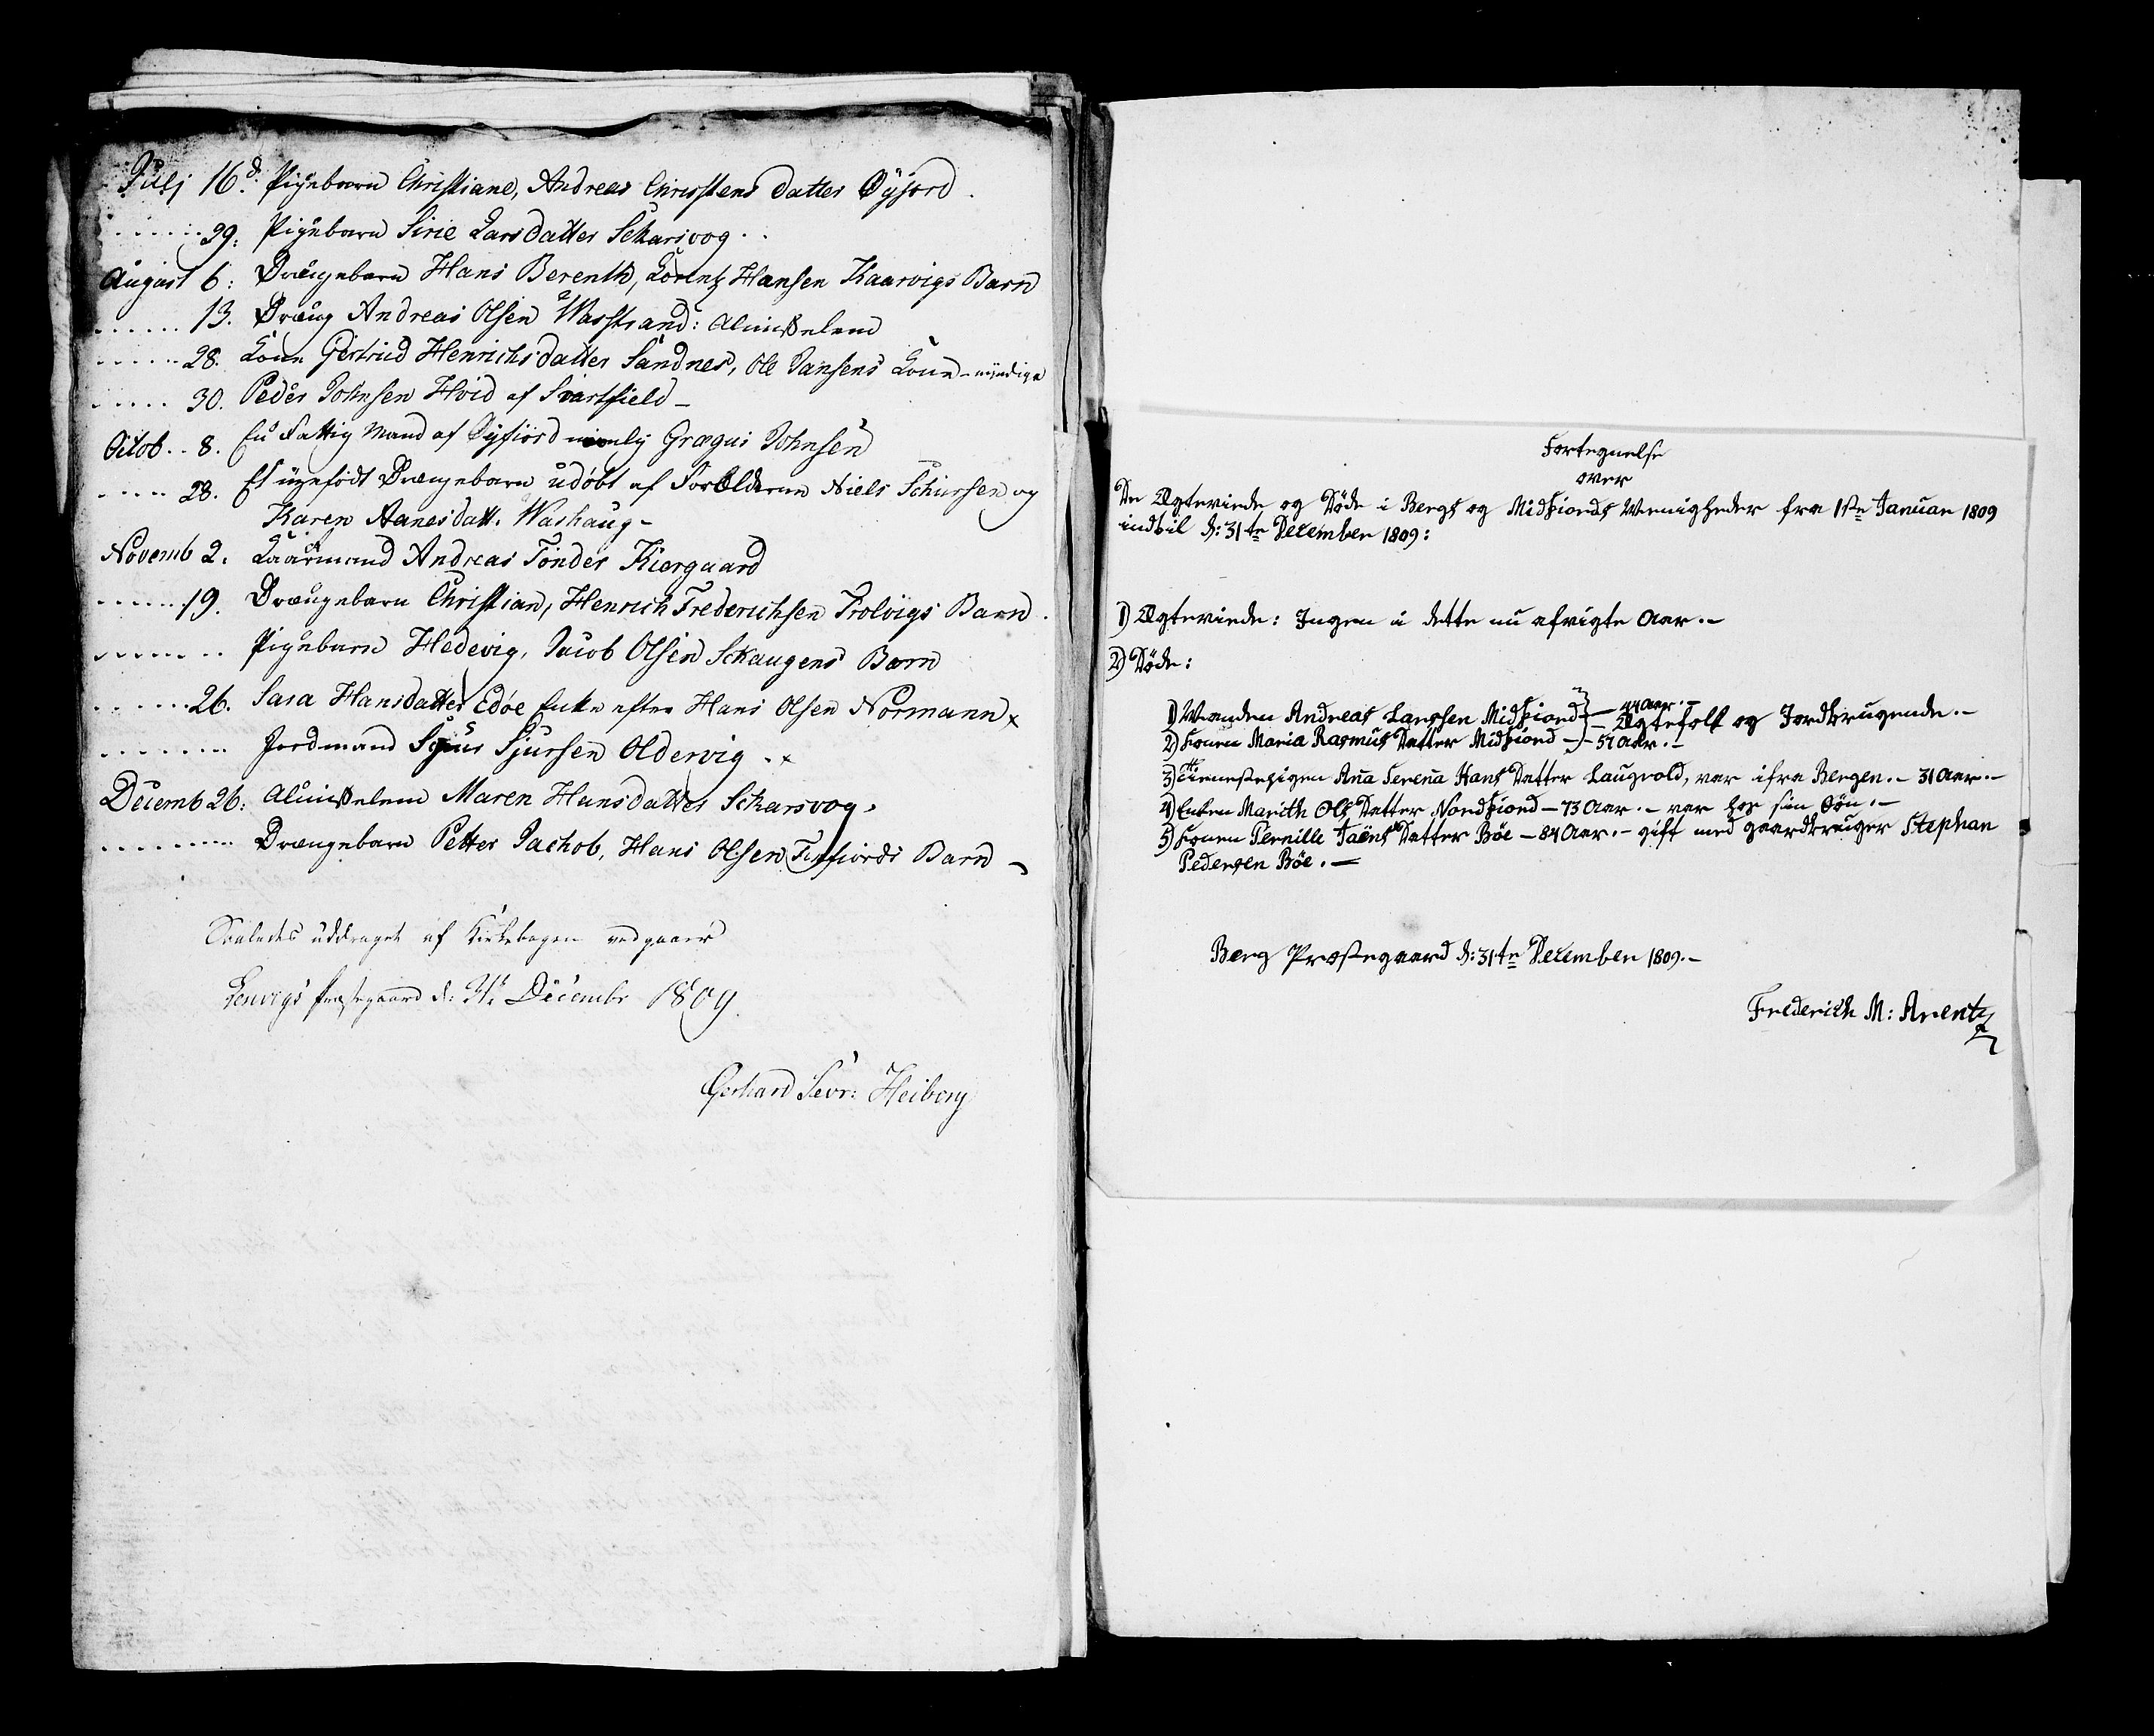 Julj 16d. Pigebarn Christiane, Andreas Christens datter Øyjord.
29. Pigebarn Sirie Larsdatter Skarsvog.
August 6: Drængebarn Hans Berenth, Lorentz Hansen Kaarvigs Barn
13. Dræng Andreas Olsen Wasstrand: Almißelem
28. Kone Gertrud Henrichsdatter Sandnes, Ole Jansens Kone - myndige
30. Peder Johnsen Hvid af Svartfield -
Octob.. 8. En Fattig Mand af Øyfiord navnlig Grægus Johnsen
28. Et ugefødt Drængebarn udøbt af Forældrene Niels Schursen og
Karen Aanesdatt. Washaug -
Novemb 2. Kaarmand Andreas Tønder Kiergaard
19. Drængebarn Christian, Henrich Frederichsen Trolvigs Barn.
Pigebarn Hedevig, Jacob Olsen Sckaugens Barn
26. Sara Hansdatter Edøe Enke efter Hans Olsen Normann x
Jordmand Sjur Sjursen Oldervig . x
Decemb 26: Almißelem Maren Hansdatter Skarsvog.
Drængebarn Petter Jachob, Hans Olsen Finfiords Barn
Saaledes uddraget af Kirkebogen vedgaaer
Lenvigs Præstegaard d: 31te Decembr 1809.
Gerhard Sevr: Heiberg
Fortegnelse
over
De Ægteviede og Døde i Bergs og Midfiords Menigheder fra 1ste Januar 1809
indtil d: 31te December 1809:
1) Ægteviede: Ingen i dette nu afvigte Aar. -
2) Døde:
1) Manden Andreas Larssen Midfiord } — 44 Aar. -
2) Konen Maria Rasmus Datter Midfiord - } - 57 Aar. - Ægtefolk og Jordbrugende. -
3) Tienestepigen Aña Sereña Hans Datter Laugvold, var ifra Bergen. - 31 Aar. -
4) Enken Marith Ols Datter Nordfiord - 73 Aar. - var hos sin Søn. -
5) Konen Pernille Jaëns Datter Böe - 84 Aar. - gift med gaardbruger Stephan
Pedersen Böe. -
Berg Præstegaard d: 31te December 1809. -
Frederich M: Arentz